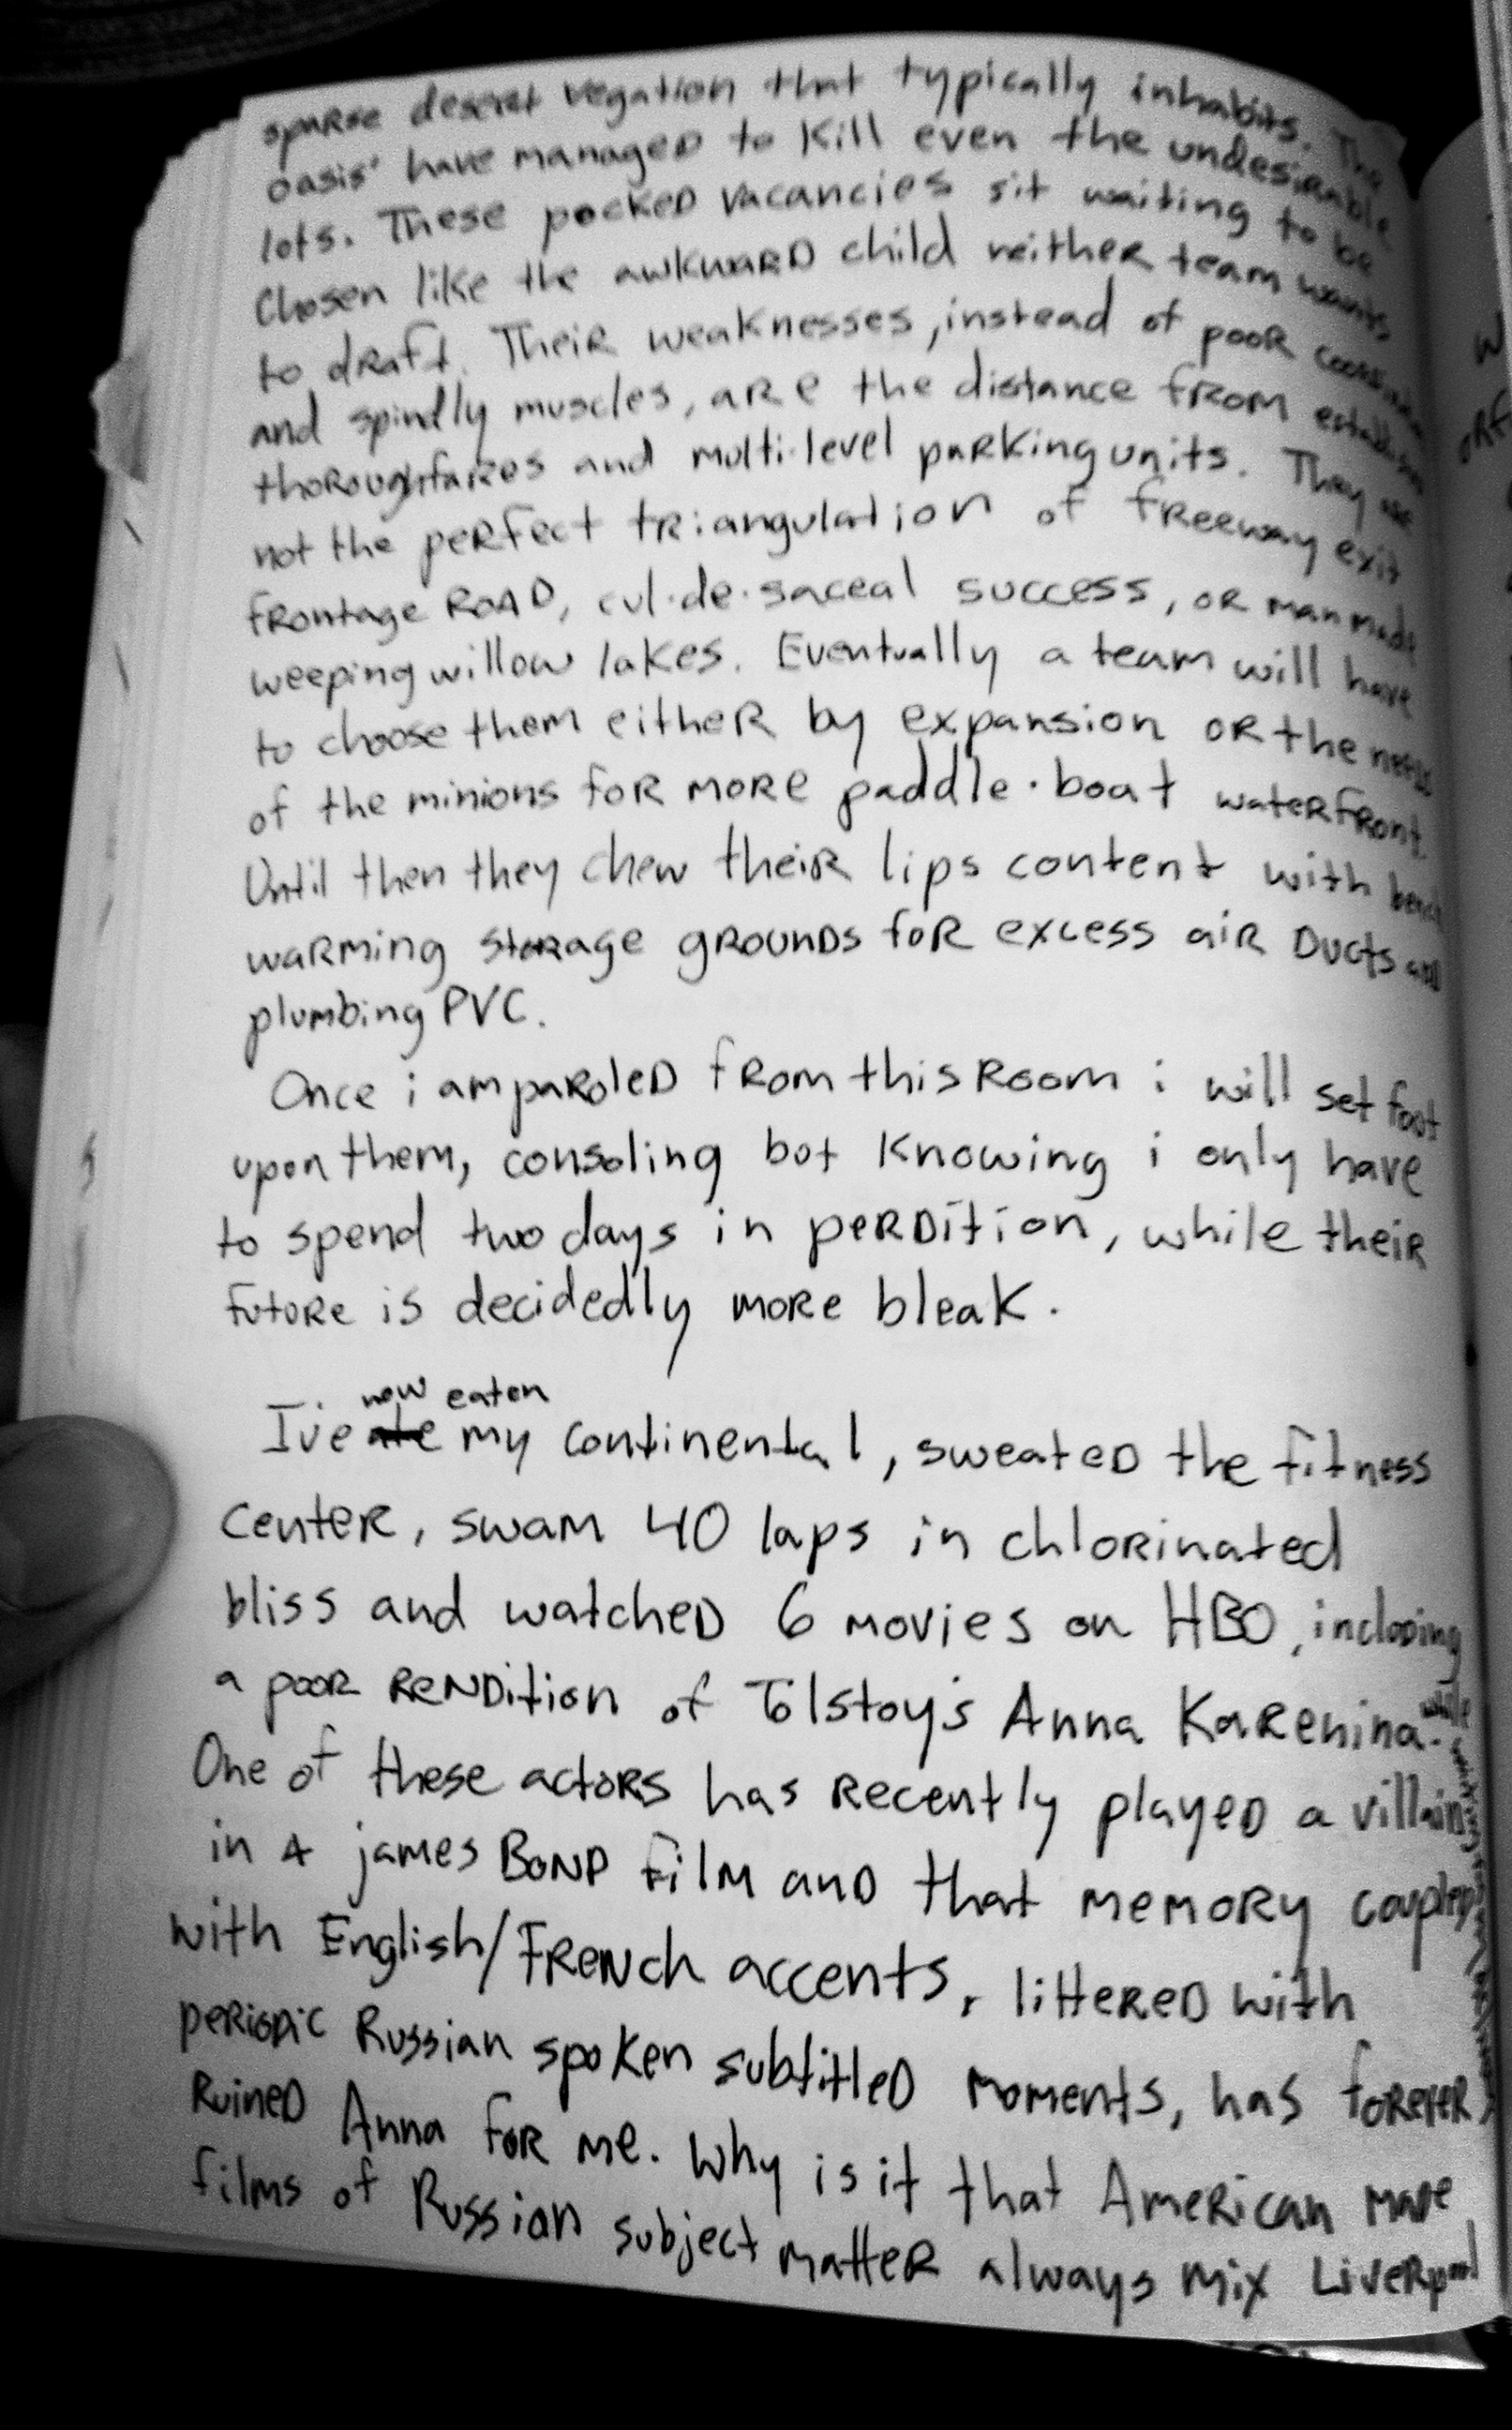 sparse deseret vegation that typically inhabits. The
oasis' have managed to kill even the undesirable
lots. These pocked vacancies sit waiting to be
chosen like the awkward child neither team wants
to draft. Their weaknesses, instead of poor
and spindly muscles, are the distance from
thoroughfares and multi-level parking units. They are
not the perfect triangulation of freeway exit
frontage road, cul-de-saceal success, or man made
weeping willow lakes. Eventually a team will have
to choose them either by expansion or the needs
of the minions for more paddle-boat waterfront.
Until then they chew their lips content with bench
warming storage grounds for excess air ducts and
plumbing PVC.
Once i am paroled from this room i will set foot
upon them, consoling bot knowing i only have
to spend two days in perdition, while their
future is decidedly more bleak.
now eaten
I've ate my continental, sweated the fitness
center, swam 40 laps in chlorinated
bliss and watched 6 movies on HBO, including
a poor rendition of Tolstoy's Anna Karenina.
One of these actors has recently played a villain
in a james Bond film and that memory coupled
with English/French accents, littered with
periodic Russian spoken subtitled moments, has forever
ruined Anna for me. Why is it that American made
films of Russian subject matter always mix Liverpool